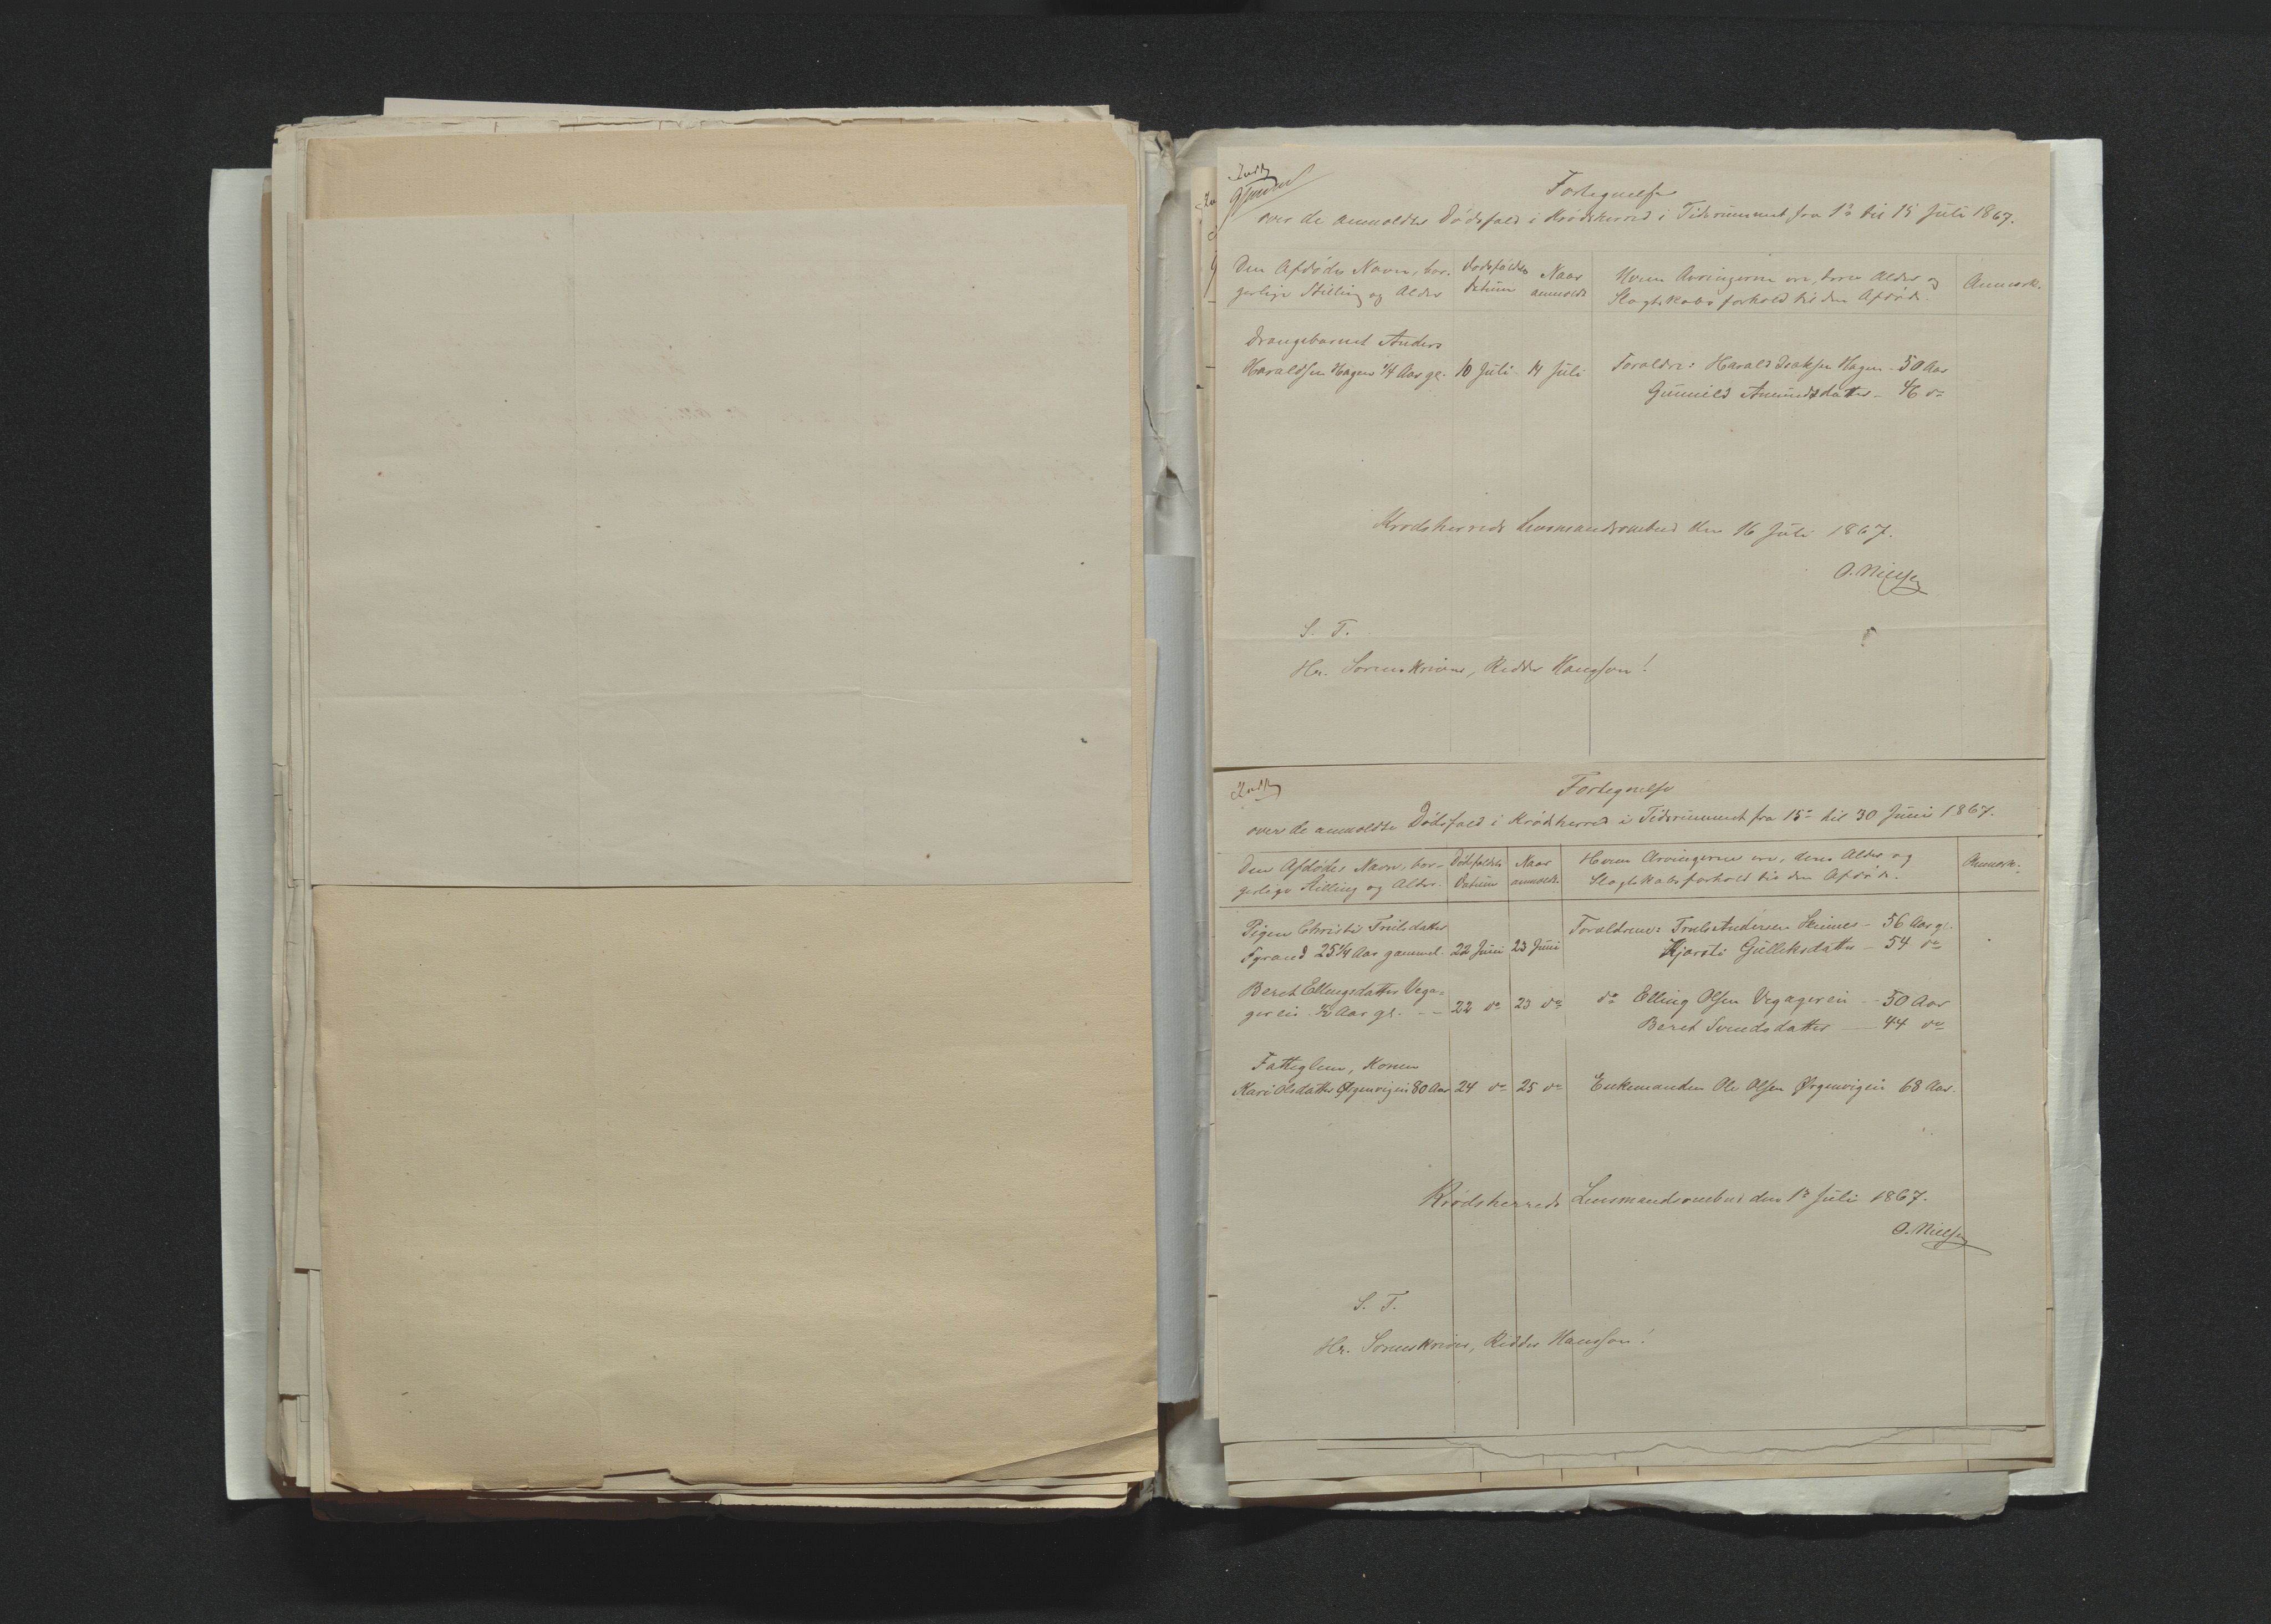 Fortegnelse
over de anmeldte Dødsfald i Krødsherred i Tidsrummet fra 1ste til 15 Juli 1867.
Den Afdødes Navn, bor- Dødsfaldets Naar Hvem Arvingerne ere, deres Alder og Anmærk.
gerlige Stilling og Alder Datum anmeldt Slægtskabsforhold til den Afdøde.
Drengebarnet Anders
Haraldsen Hagen 1/4 Aar gl. 10 Juli 14 Juli Forældre: Harald Isaksen Hagen - 50 Aar
Gunnild Amundsdatter - 46 do
Krødsherreds Lensmandsombud den 16 Juli 1867.
O. Nielsen
S. T.
Hr. Sorenskriver, Ridder Hansson!
Fortegnelse
over de anmeldte Dødsfald i Krødsherred i Tidsrummet fra 15de til 30 Juni 1867.
Den Afdødes Navn, bor- Dødsfaldets Naar Hvem Arvingerne ere, deres Alder og Anmærk.
gerlige Stilling og Alder. Datum anmeldt. Slægtskabsforhold til den Afdøde.
Pigen Christi Trulsdatter Forældrene: Truls Andersen - 56 Aar gl.
25 1/4 Aar gammel. 22 Juni 23 Juni Kjersti Gulleksdatter - 54 do
Beret Ellingsdatter Vega-
gereie 1/2 Aar gl. - - 22 do 23 do do Elling Olsen Vegagereie - 50 Aar
Beret Svendsdatter - 44 do
Fattiglem, Konen
Kari Olsdatter Ørgenvigeie 80 Aar 24 do 25 do Enkemanden Ole Olsen Ørgenvigeie 68 Aar.
Krødsherreds Lensmandsombud den 1ste Juli 1867.
O. Nielsen
S. T.
Hr. Sorenskriver, Ridder Hansson!